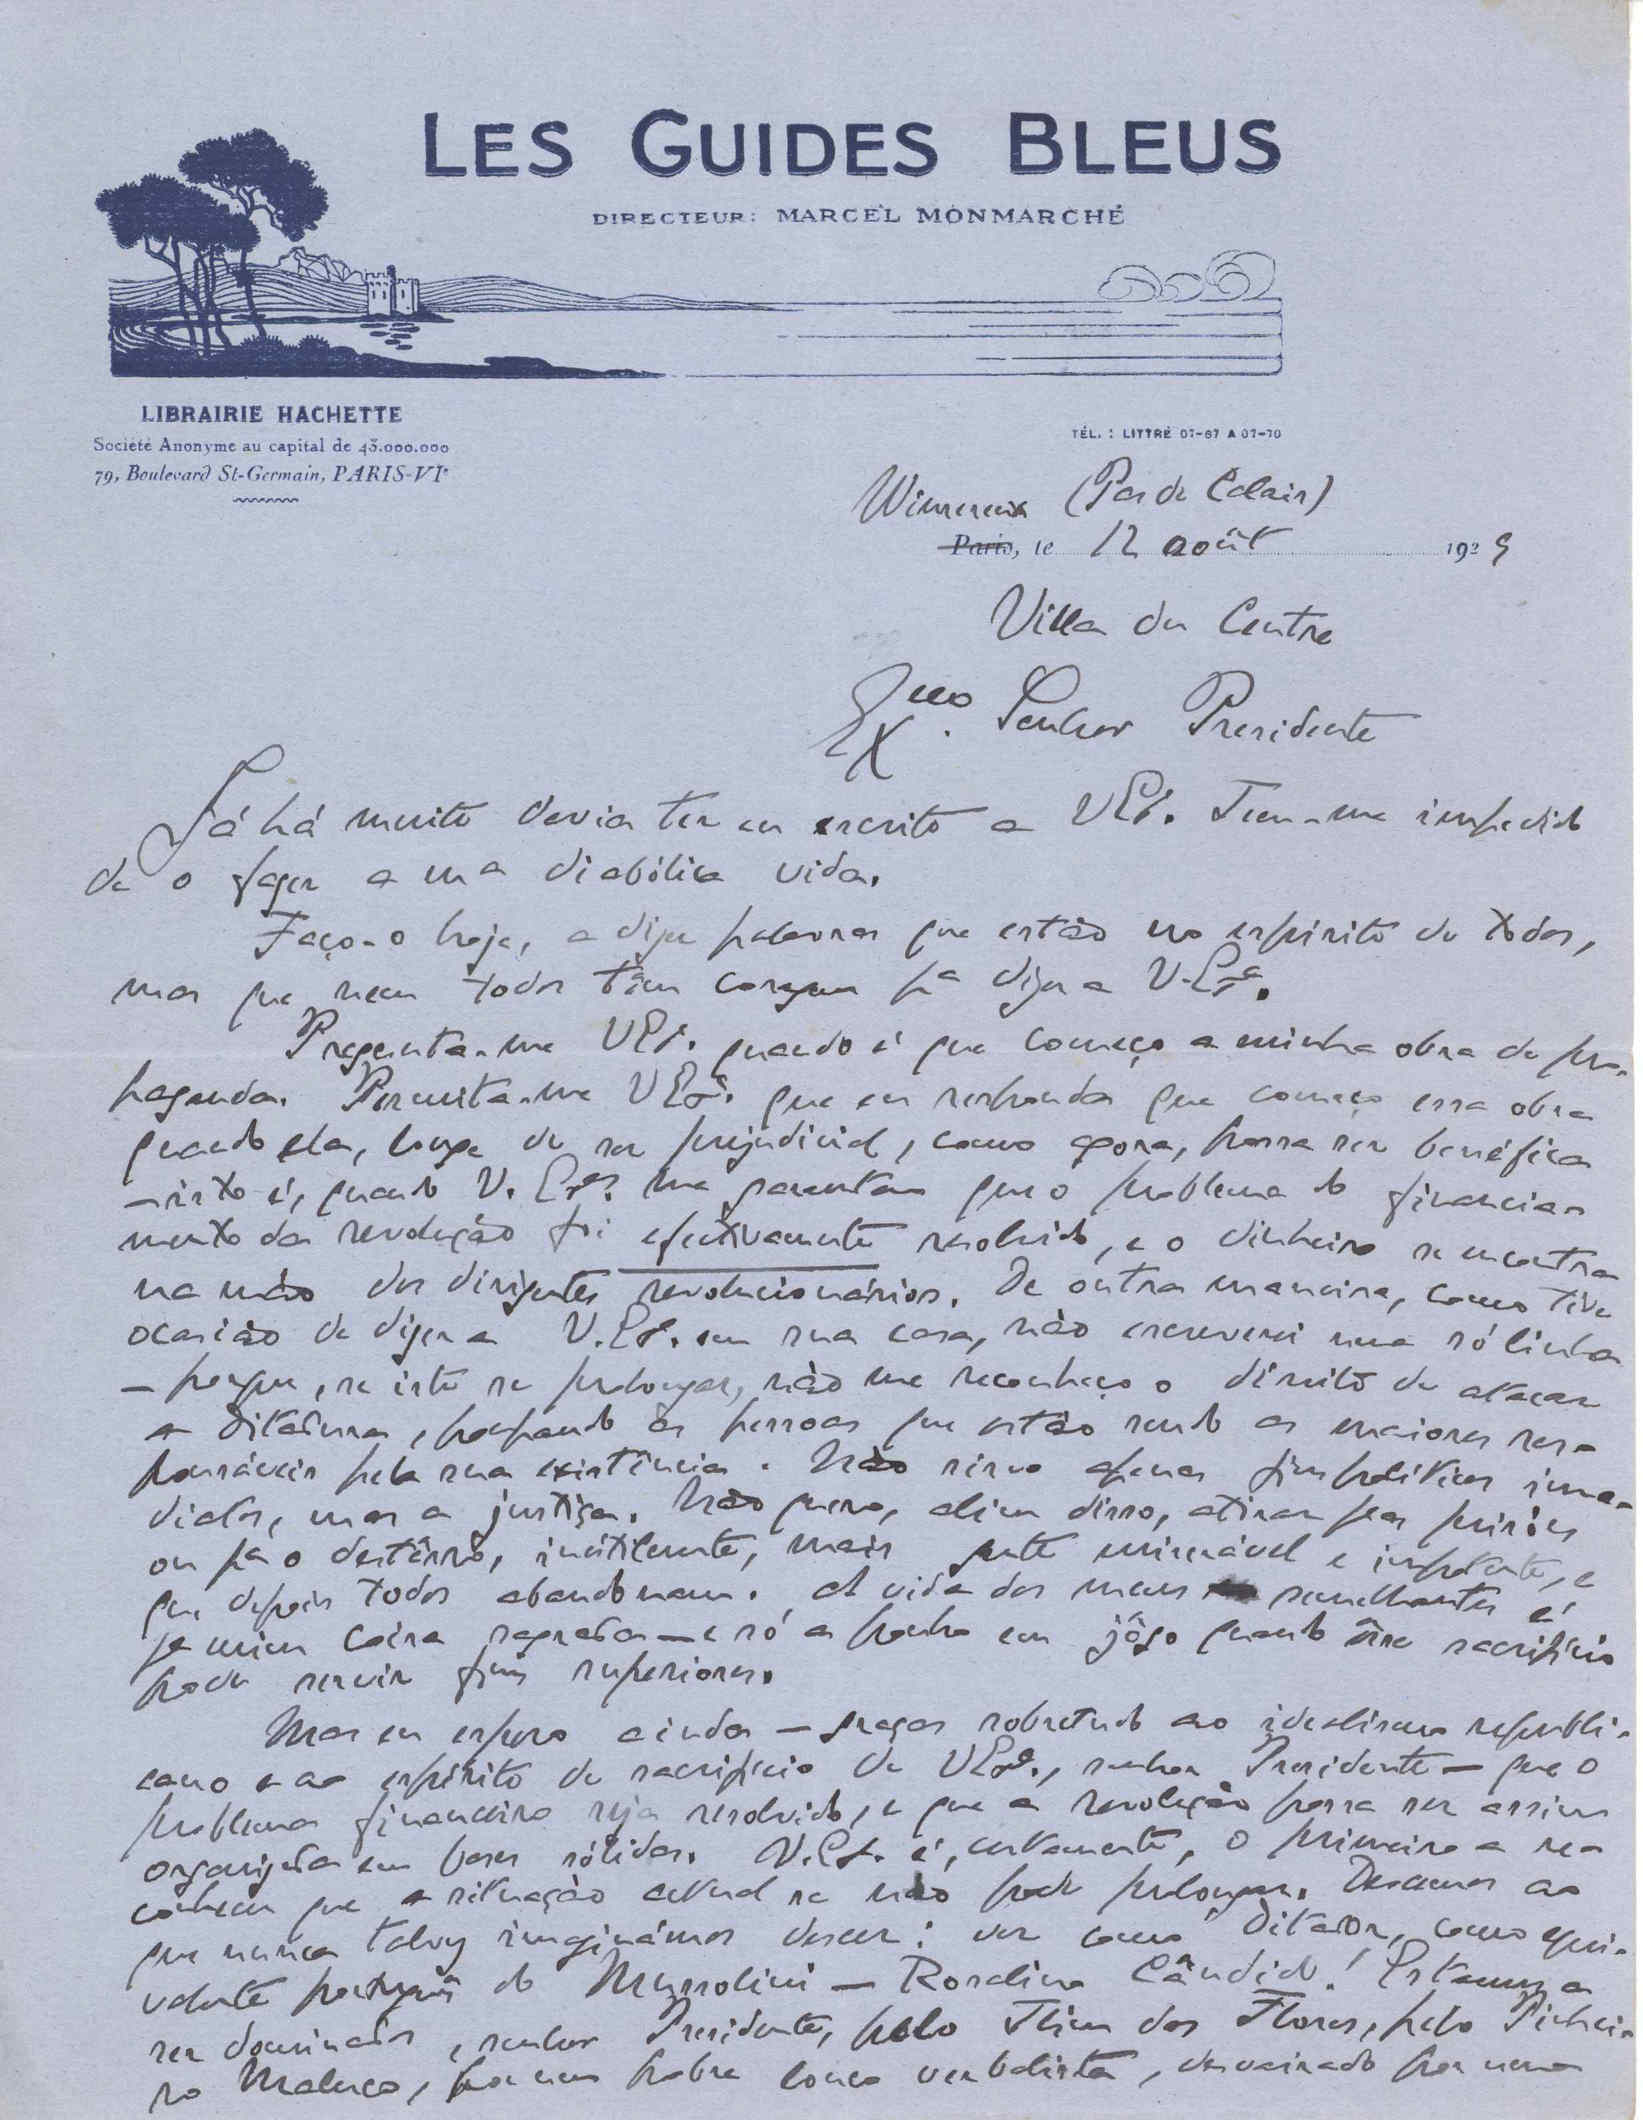 LES GUIDES BLEUS
DIRECTEUR: MARCEL MONMARCHÉ
LIBRAIRIE HACHETTE
Société Anonyme au capital de 43.000.000
79, Boulevard St-Germain, PARIS-VIe
TÉL. : LITTRÉ 07-67 A 07-70
Wimereux (Pas de Calais)
Paris, le 12 août 1929
Villa du Centre
Exmo. Senhor Presidente
Já há muito devia ter eu escrito a V Exa. Tem-me impedido
de o fazer a ma diabólica vida.
Faço-o hoje, a dizer palavras que estão no espírito de todos,
mas que nem todos têm coragem pa dizer a V. Exa.
Pregunta-me V Exa. quando é que começo a minha obra de pro-
paganda. Permita-me V Exa. que eu responda que começo essa obra
quando ela, longe de ser prejudicial, como agora, possa ser benéfica
— isto é, quando V. Exas me garantam que o problema do financia-
mento da revolução foi efectivamente resolvido, e o dinheiro se encontra
na mão dos dirigentes revolucionários. De outra maneira, como tive
ocasião de dizer a V. Exa. em sua casa, não escreverei uma só linha
— porque, se isto se prolongar, não me reconheço o direito de atacar
a ditadura, poupando as pessoas que estão sendo as maiores res-
ponsáveis pela sua existência. Não sirvo apenas fins políticos ime-
diatos, mas a justiça. Não quero, além disso, atirar pas prisões
ou pa o destêrro, inùtilmente, mais gente miserável e impotente, e
que depois todos abandonam. A vida dos meus semelhantes é
pa mim coisa sagrada — e só a ponho em jôgo quando êsse sacrifício
pode servir fins superiores.
Mas eu espero ainda — graças sobretudo ao idealismo republi-
cano e ao espírito de sacrifício de V Exa., senhor Presidente — que o
problema financeiro seja resolvido, e que a revolução possa ser assim
organizada em bases sólidas. V. Exa. é, certamente, o primeiro a re-
conhecer que a situação actual se não pode prolongar. Descemos ao
que nunca talvez imaginámos descer: ver como ditador, como equi-
valente português do Mussolini — Rosalino Cândido! Estamos a
ser dominados, senhor Presidente, pelo Flim das Flores, pelo Pinhei-
ro Maluco, por um pobre louco verbalista, desvairado por uma